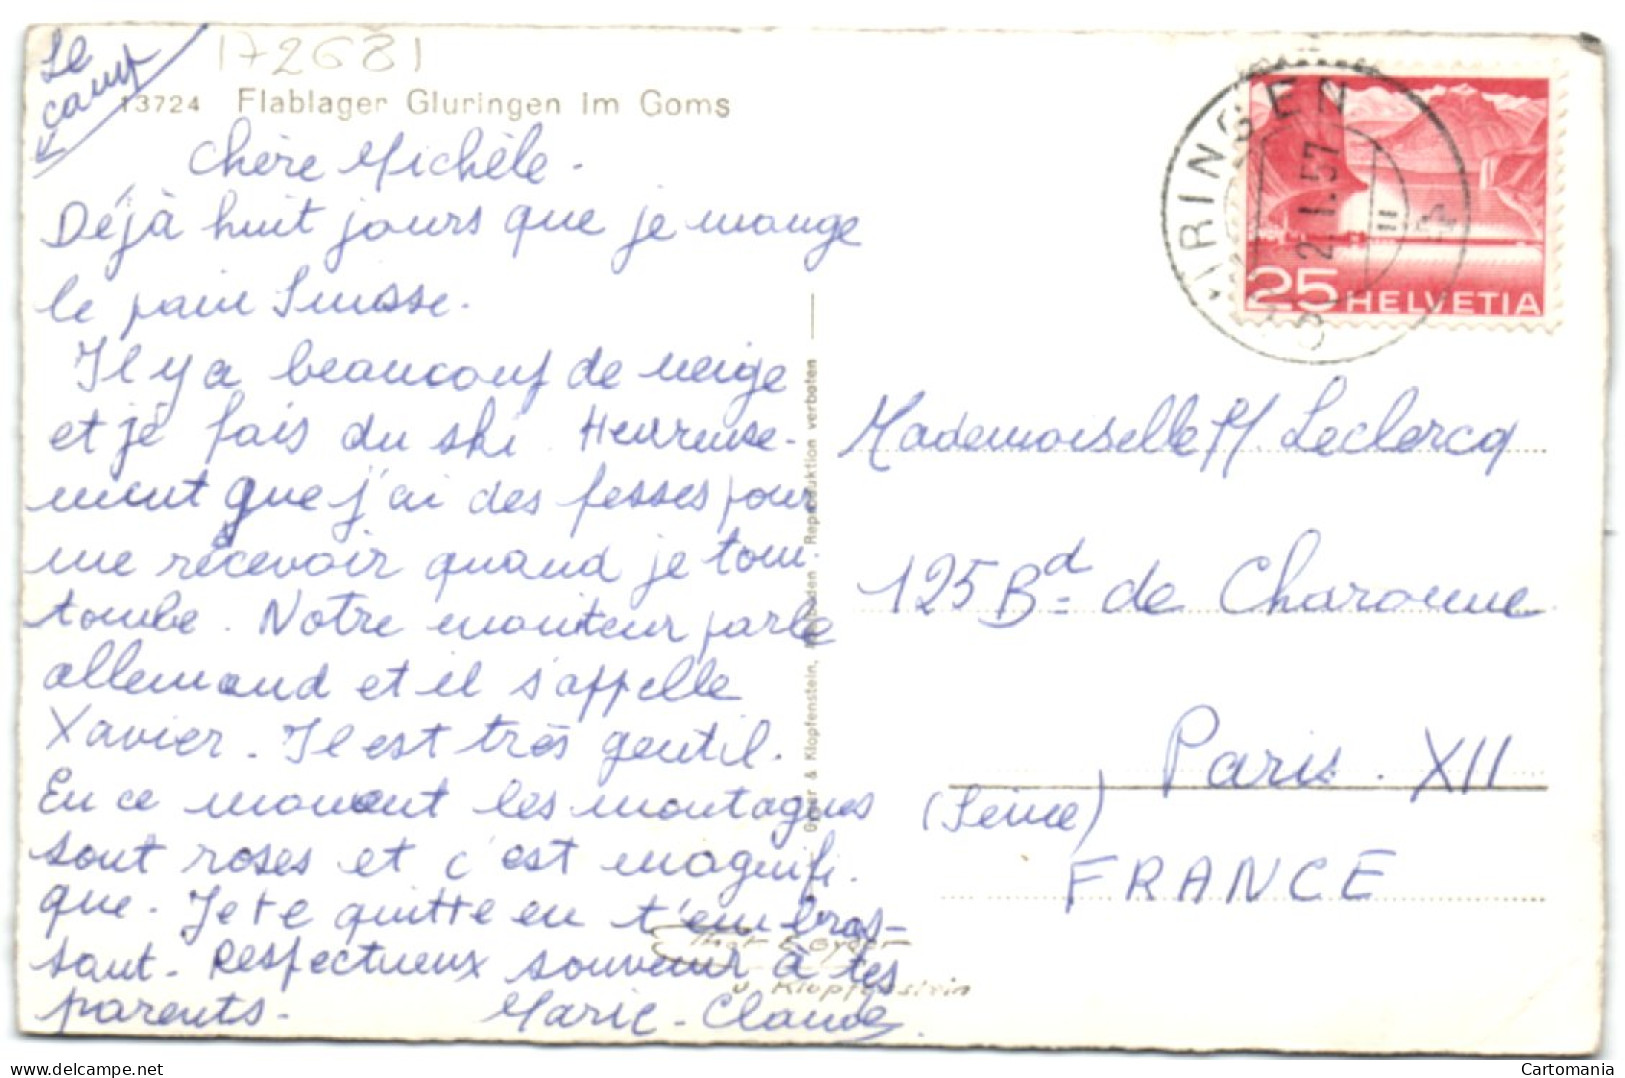 Le
camp
172681
13724 Flablager Gluringen im Goms
Chère Michèle.
Déjà huit jours que je mange
le pain Suisse.
Il y a beaucoup de neige
et je fais du ski. Heureuse-
ment que j'ai des fesses pour
me recevoir quand je tom-
tombe. Notre moniteur parle
allemand et il s'appelle
Xavier. Il est très gentil.
En ce moment les montagnes
sont roses et c'est magnifi-
que. Je te quitte en t'embras-
sant. Respectueux souvenir à tes
parents.
Marie-Claude
Klopfenstein, Reproduktion verboten
Phot E Gyger
u. Klopfenstein
IRINGEN
2.I.57
25 HELVETIA
Mademoiselle M. Leclercq
125 Bd de Charonne
Paris. XII
(Seine)
FRANCE
Cartomania